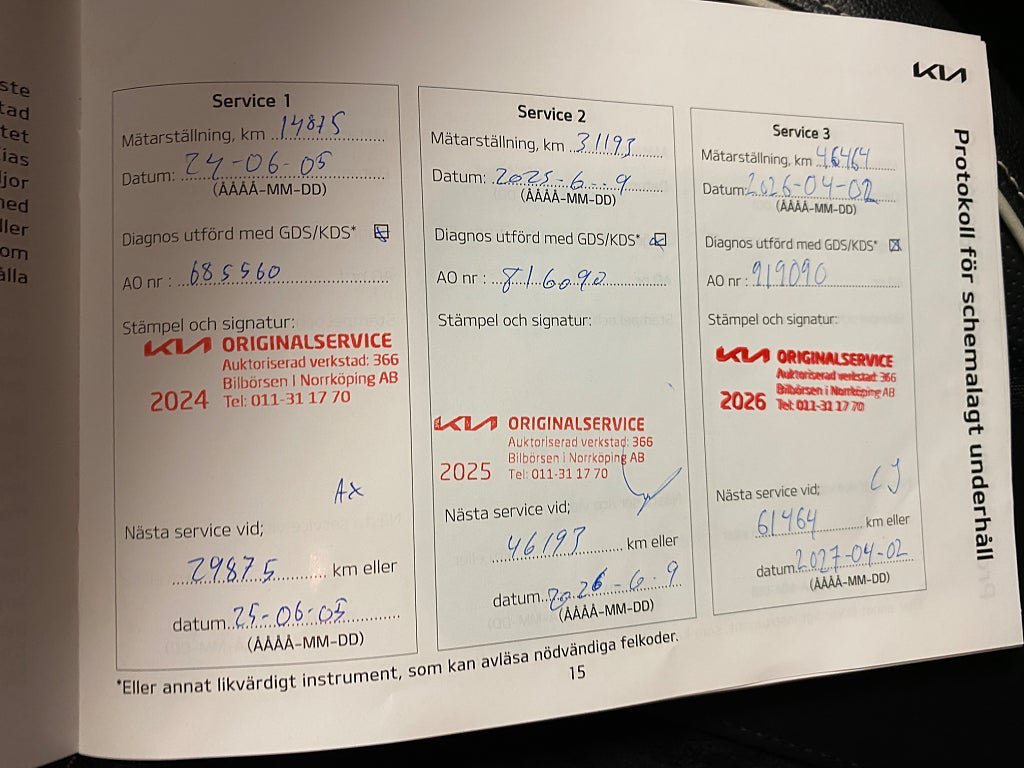 ste
tad
tet
ias
djor
med
ller
om
älla
KIA
Protokoll för schemalagt underhåll
Service 1
Mätarställning, km 14875
Datum: 24-06-05
(ÅÅÅÅ-MM-DD)
Diagnos utförd med GDS/KDS*
AO nr : 685560
Stämpel och signatur:
KIA ORIGINALSERVICE
Auktoriserad verkstad: 366
Bilbörsen i Norrköping AB
2024 Tel: 011-31 17 70
AX
Nästa service vid;
29875 km eller
datum. 25-06-05
(ÅÅÅÅ-MM-DD)
Service 2
Mätarställning, km 31193
Datum: 2025-6-9
(ÅÅÅÅ-MM-DD)
Diagnos utförd med GDS/KDS*
AO nr : 816090
Stämpel och signatur:
KIA ORIGINALSERVICE
Auktoriserad verkstad: 366
Bilbörsen i Norrköping AB
2025 Tel: 011-31 17 70
Nästa service vid;
46193 km eller
datum. 2026-6-9
(ÅÅÅÅ-MM-DD)
Service 3
Mätarställning, km 46464
Datum: 2026-04-02
(ÅÅÅÅ-MM-DD)
Diagnos utförd med GDS/KDS*
AO nr : 919090
Stämpel och signatur:
KIA ORIGINALSERVICE
Auktoriserad verkstad: 366
Bilbörsen i Norrköping AB
2026 Tel: 011-31 17 70
CJ
Nästa service vid;
61464 km eller
datum. 2027-04-02
(ÅÅÅÅ-MM-DD)
*Eller annat likvärdigt instrument, som kan avläsa nödvändiga felkoder.
15